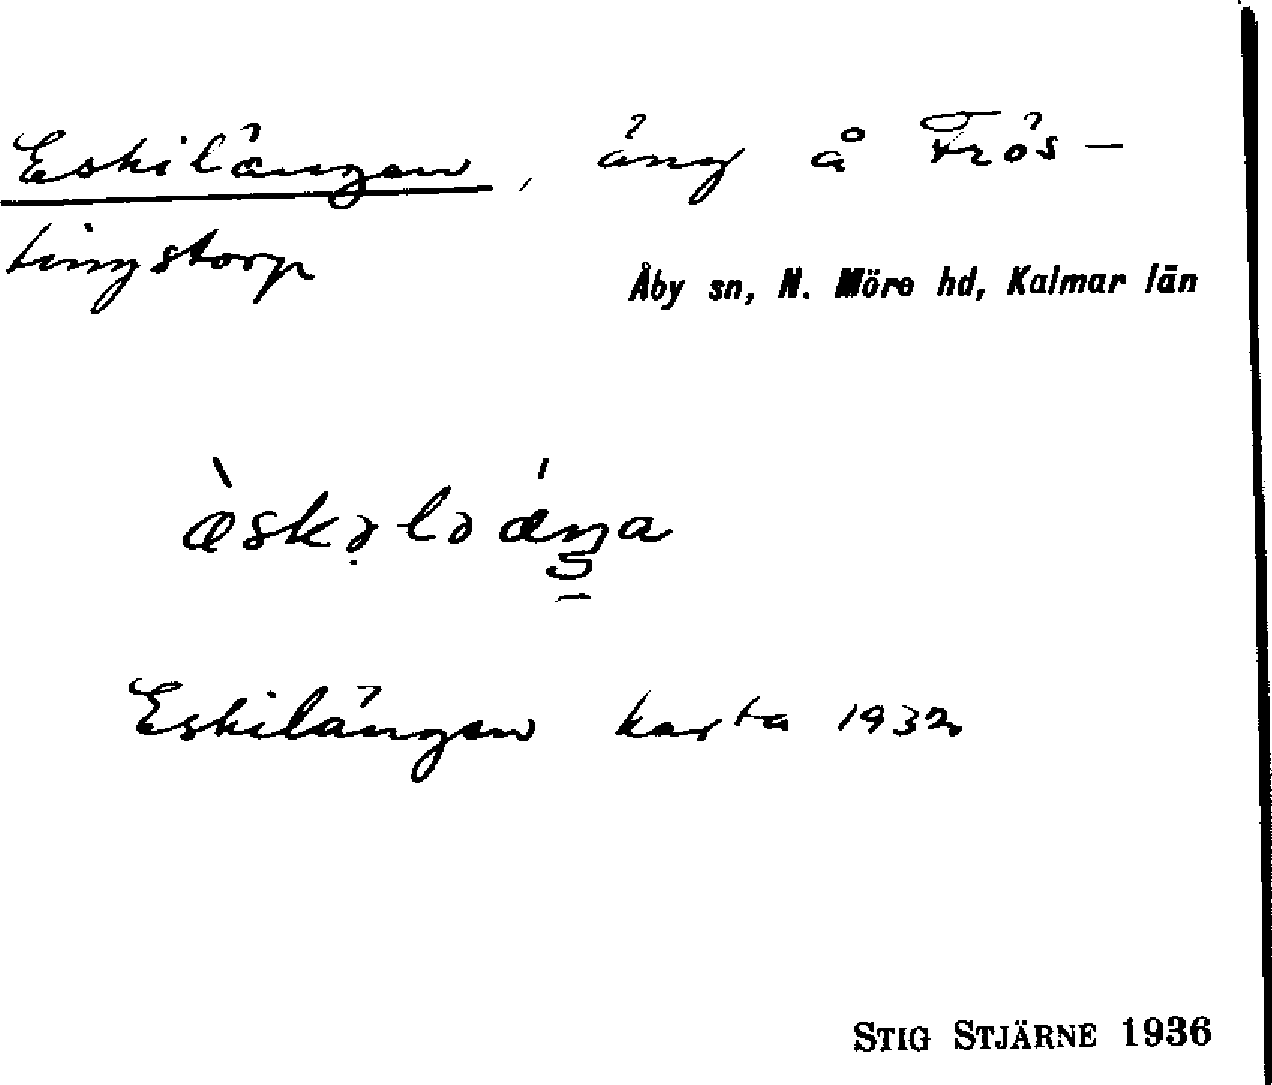 Eskilängen, äng å Frös-
tingstorp
Åby sn, N. Möre hd, Kalmar län
Eskilängen karta 1932
STIG STJÄRNE 1936